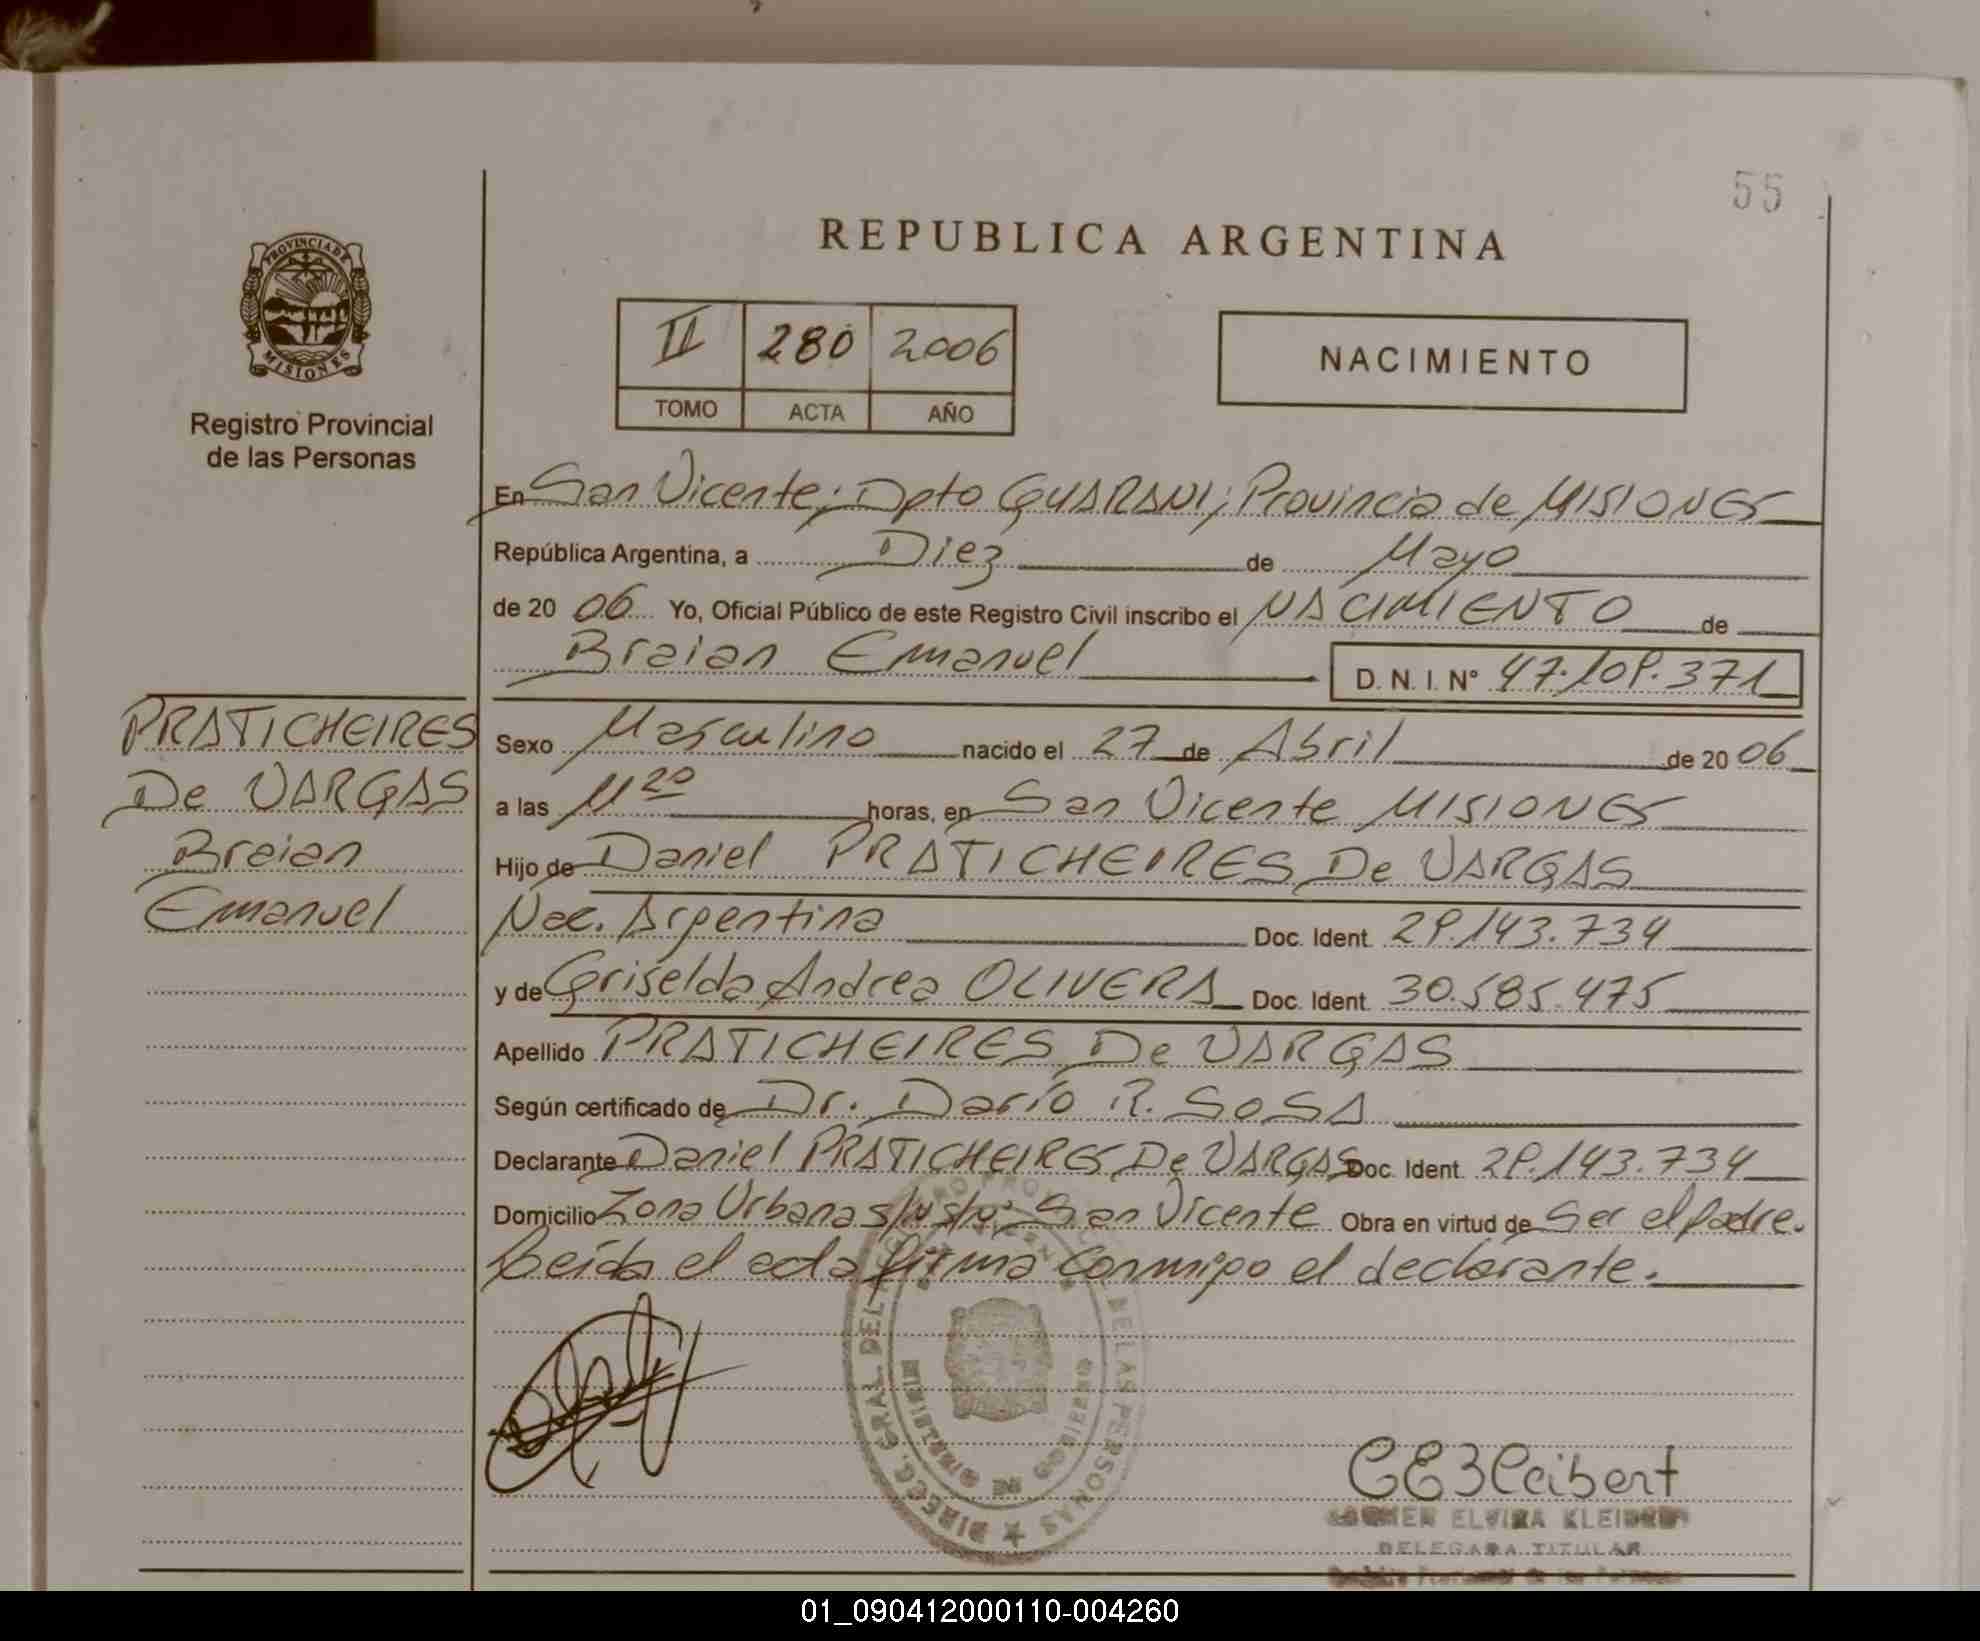 55
REPUBLICA ARGENTINA
PROVINCIA DE
MISIONES
Registro Provincial
de las Personas
II 280 2006
TOMO ACTA AÑO
NACIMIENTO
En San Vicente; Dpto GUARANI; Provincia de MISIONES
República Argentina, a Diez de Mayo
de 20 06 Yo, Oficial Público de este Registro Civil inscribo el NACIMIENTO de
Braian Emanuel D. N. I. N° 47.109.371
PRATICHEIRES
De VARGAS
Braian
Emanuel
Sexo Masculino nacido el 27 de Abril de 20 06
a las 11 20 horas, en San Vicente MISIONES
Hijo de Daniel PRATICHEIRES De VARGAS
Nac. Argentina Doc. Ident. 29.143.734
y de Griselda Andrea OLIVERA Doc. Ident. 30.585.475
Apellido PRATICHEIRES De VARGAS
Según certificado de Dr. Darío R. SOSA
Declarante Daniel PRATICHEIRES De VARGAS Doc. Ident. 29.143.734
Domicilio Zona Urbana San Vicente Obra en virtud de Ser el padre.
Leída el acta firma conmigo el declarante.
DIRECC. GRAL. DEL REGISTRO PROV. DE LAS PERSONAS
MINISTERIO DE GOBIERNO
CEKleibert
CARMEN ELVIRA KLEIBERT
DELEGADA TITULAR
01_090412000110-004260